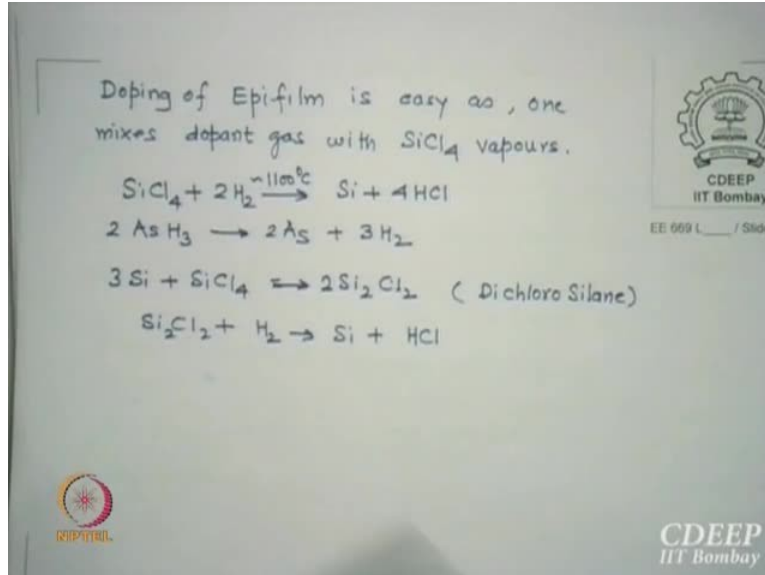 Doping of Epifilm is easy as, one
mixes dopant gas with SiCl4 vapours.
SiCl4 + 2H2 ~1100°C → Si + 4HCl
2 AsH3 → 2As + 3H2
3Si + SiCl4 ⇌ 2Si2Cl2 (Dichloro Silane)
Si2Cl2 + H2 → Si + HCl
CDEEP
IIT Bombay
EE 669 L____ / Slid
NPTEL
CDEEP
IIT Bombay